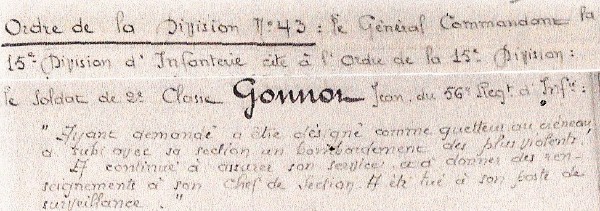 Ordre de la Division N°43 : le Général Commandant la
15e Division d'Infanterie cite à l'Ordre de la 15e Division :
le Soldat de 2e Classe Gonnor Jean, du 56e Regt d'Infie :
"Ayant demandé à être désigné comme guetteur au créneau
a subi avec sa section un bombardement des plus violents.
A continué à assurer son service et à donner des ren-
seignements à son Chef de Section. A été tué à son poste de
surveillance."